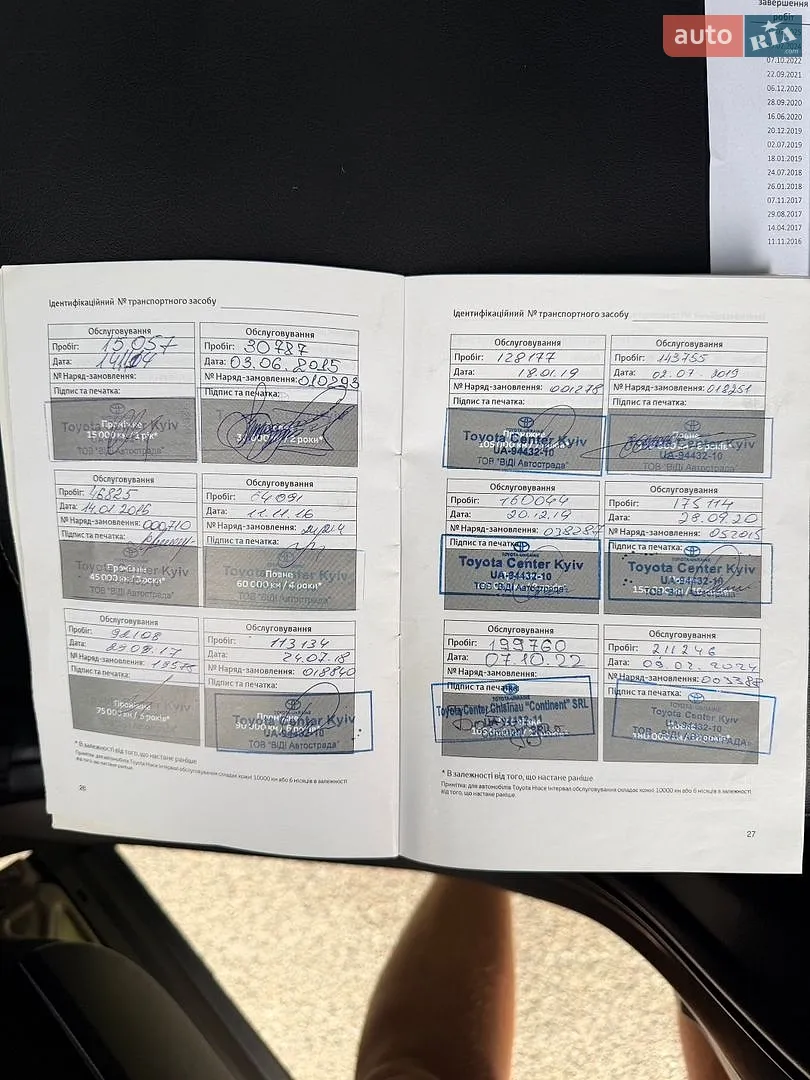 завершення
робіт
auto RIA
.com
07.10.2022
22.09.2021
06.12.2020
28.09.2020
16.06.2020
20.12.2019
02.07.2019
18.01.2019
24.07.2018
26.01.2018
07.11.2017
29.08.2017
14.04.2017
11.11.2016
Ідентифікаційний № транспортного засобу
Обслуговування
Пробіг: 15.057
Дата:
№ Наряд-замовлення:
Підпис та печатка:
15 000 км / 1 рік*
ТОВ "ВіДі Автострада"
Обслуговування
Пробіг: 30787
Дата: 03.06.2015
№ Наряд-замовлення: 010293
Підпис та печатка:
Обслуговування
Пробіг: 46825
Дата: 14.01.2016
№ Наряд-замовлення: 000710
Підпис та печатка:
Toyota Center Kyiv
Проміжне
45 000 км / 3 роки*
ТОВ "ВіДі Автострада"
Обслуговування
Пробіг: 64091
Дата: 11.11.16
№ Наряд-замовлення:
Підпис та печатка:
Toyota Center Kyiv
Повне
60 000 км / 4 роки*
ТОВ "ВіДі Автострада"
Обслуговування
Пробіг: 92108
Дата: 29.08.17
№ Наряд-замовлення: 19575
Підпис та печатка:
Проміжне
75 000 км / 5 років*
Обслуговування
Пробіг: 113134
Дата: 24.07.18
№ Наряд-замовлення: 018840
Підпис та печатка:
Toyota Center Kyiv
UA-94432-10
ТОВ "ВіДі Автострада"
* В залежності від того, що настане раніше
Примітка: для автомобілів Toyota Hiace інтервал обслуговування складає кожні 10000 км або 6 місяців в залежності
від того, що настане раніше.
26
Ідентифікаційний № транспортного засобу
Обслуговування
Пробіг: 128177
Дата: 18.01.19
№ Наряд-замовлення: 001278
Підпис та печатка:
Toyota Center Kyiv
UA-94432-10
ТОВ "ВіДі Автострада"
Обслуговування
Пробіг: 143755
Дата: 02.07.2019
№ Наряд-замовлення: 018251
Підпис та печатка:
Toyota Center Kyiv
UA-94432-10
ТОВ "ВіДі Автострада"
Обслуговування
Пробіг: 160044
Дата: 20.12.19
№ Наряд-замовлення: 038287
Підпис та печатка:
TOYOTA-UKRAINE
Toyota Center Kyiv
UA-94432-10
ТОВ "ВіДі Автострада"
Обслуговування
Пробіг: 175114
Дата: 28.09.20
№ Наряд-замовлення: 052015
Підпис та печатка:
TOYOTA-UKRAINE
Toyota Center Kyiv
UA-94432-10
Обслуговування
Пробіг: 199760
Дата: 07.10.22
№ Наряд-замовлення:
Підпис та печатка:
Toyota Center Chisinau "Continent" SRL
Обслуговування
Пробіг: 211246
Дата: 09.02.2024
№ Наряд-замовлення: 003388
Підпис та печатка:
TOYOTA-UKRAINE
Toyota Center Kyiv
UA-94432-10
* В залежності від того, що настане раніше
Примітка: для автомобілів Toyota Hiace інтервал обслуговування складає кожні 10000 км або 6 місяців в залежності
від того, що настане раніше.
27